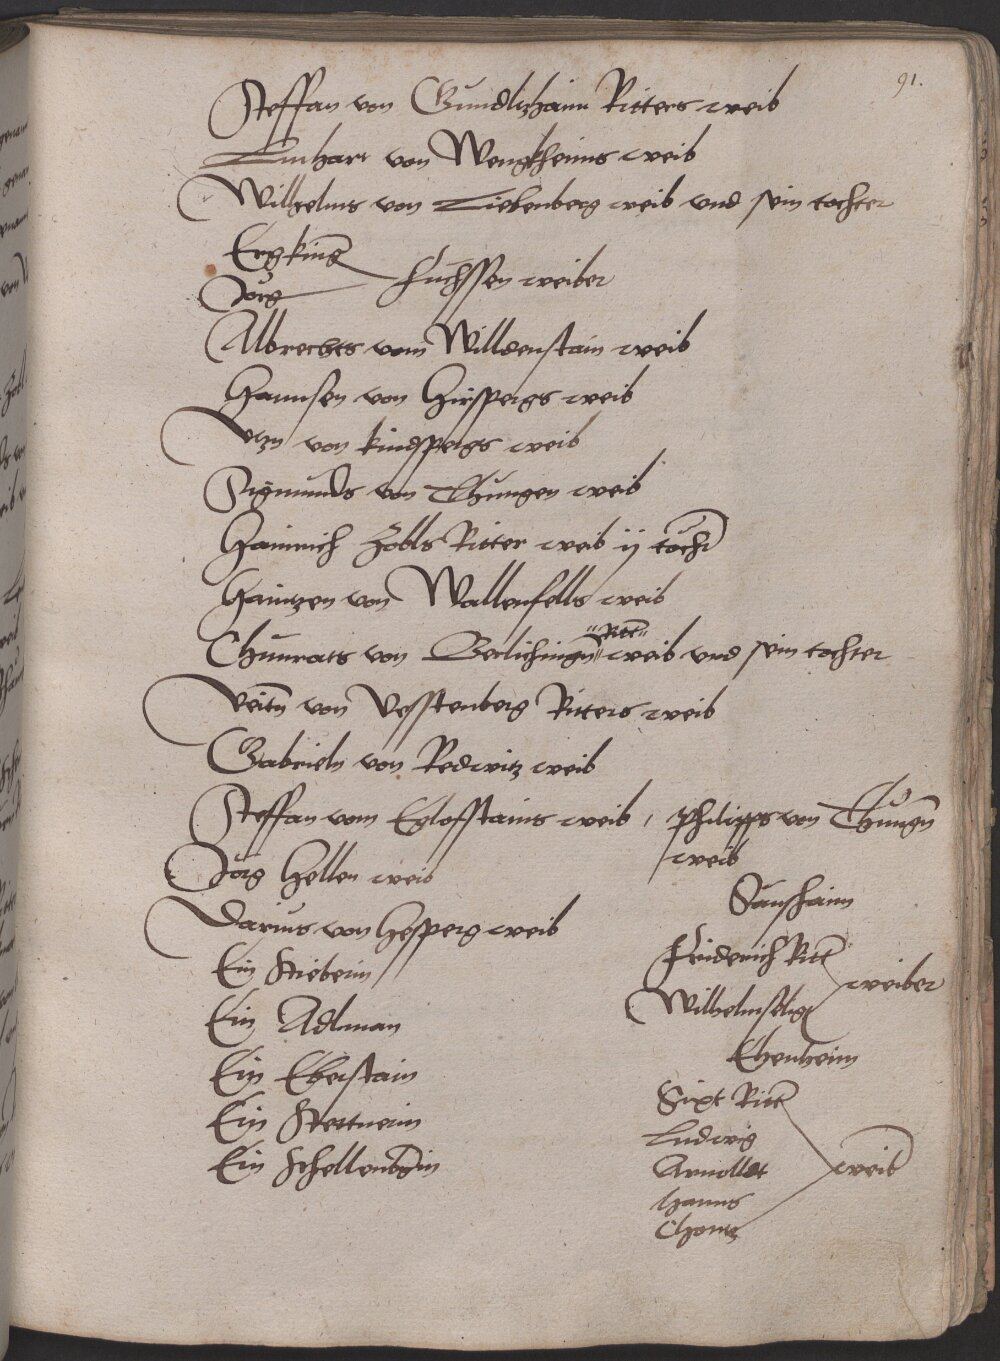 91.
Steffan von Gundltzhaim Ritters weib
Linhart von Wengkheims weib
Wilhelms von Liebenberg weib und sein tochter
Ergking
Jörg
Fuchssen weiber
Albrechts vom Willdenstain weib
Hannsen von Hirspergs weib
Utzn von Kindspergs weib
Sigmunds von Thungen weib
Hainrich Zobls Ritter weib ij töcht
Haintzen von Wallenfells weib
Chunrats von Berlichingn Ritt weib und sein tochter
Veitn von Vesstenberg Ritters weib
Gabrieln von Redwitz weib
Steffan vom Eglofstains weib
Jörg Hellen weib
Darius von Hesperg weib
Ein Stieberin
Ein Adlman
Ein Eberstain
Ein Stettnerin
Ein Schellenbgin
Philipps von Thungn
weib
Saunshaim
Friderich Ritt
Wilhelm
weiber
Ehenheim
Sixt Ritt
Ludwig
Arnolldt
Hanns
Chontz
weib